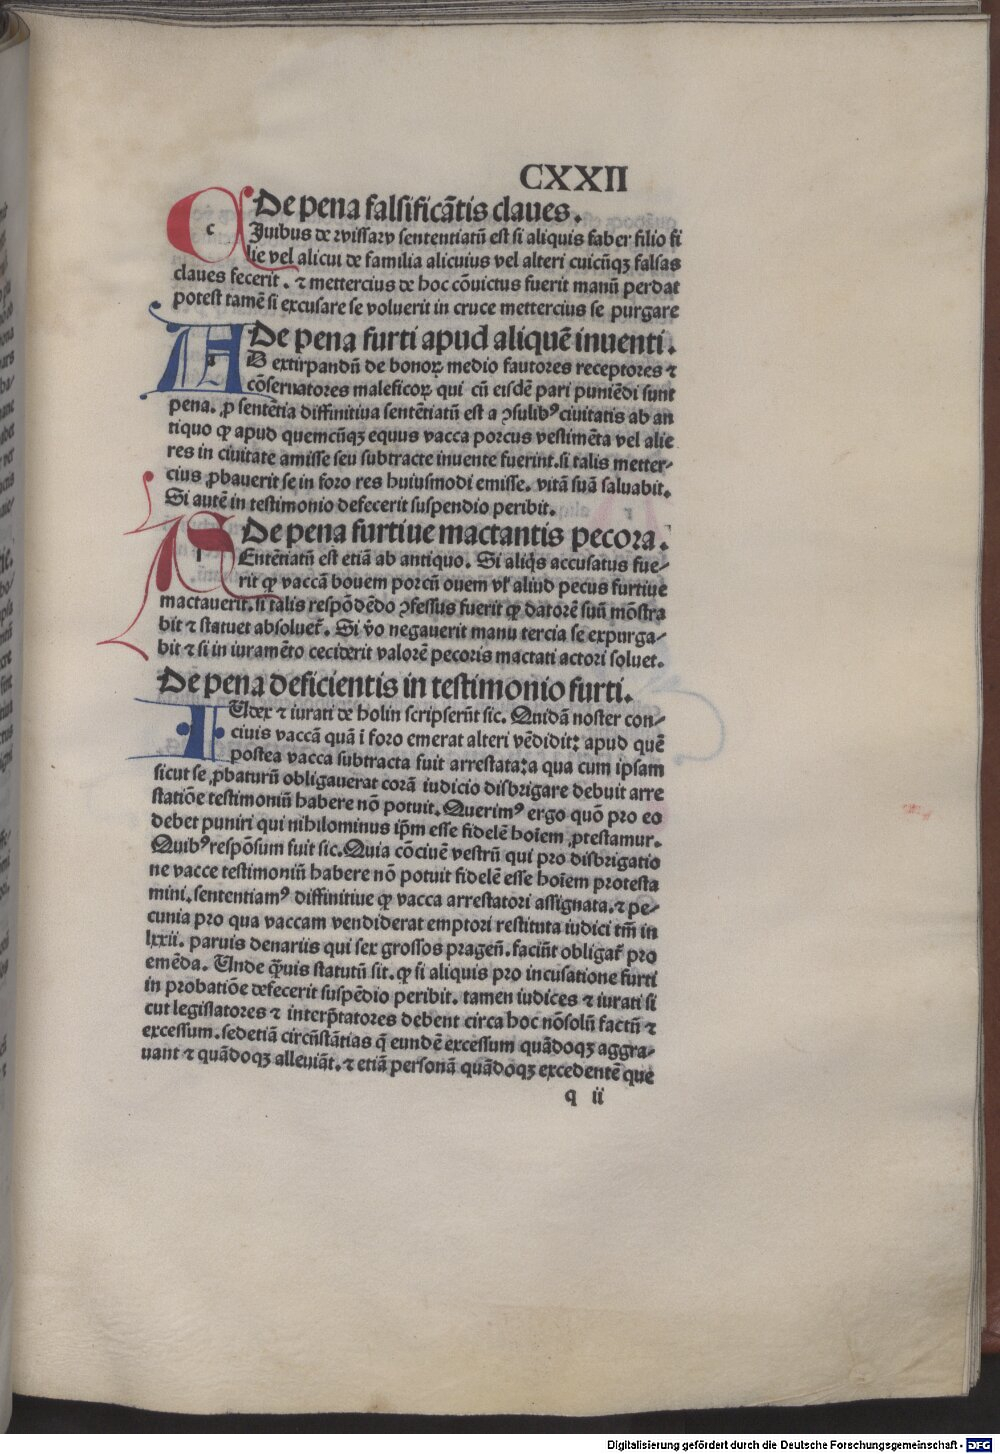 CXXII
De pena falsificãtis claues.
CJuibus de rvissarv sententiatũ est si aliquis faber filio fi
lie vel alicui de familia alicuius vel alteri cuicũqꝫ falsas
claues fecerit . ⁊ mettercius de hoc cõuictus fuerit manũ perdat
potest tamẽ si excusare se voluerit in cruce mettercius se purgare
De pena furti apud aliquẽ inuenti .
AD extirpandũ de bonoꝝ medio fautores receptores ⁊
cõseruatores maleficoꝝ qui cũ eisdẽ pari puniẽdi sunt
pena. ꝓ sentẽtia diffinitiua sentẽtiatũ est a ꝯsulibꝰ ciuitatis ab an
tiquo ꝙ apud quemcũqꝫ equus vacca porcus vestimẽta vel alie
res in ciuitate amisse seu subtracte inuente fuerint.si talis metter-
cius ꝓbauerit se in foro res huiusmodi emisse. vitã suã saluabit.
Si autẽ in testimonio defecerit suspendio peribit.
De pena furtiue mactantis pecora .
SEntẽtiatũ est etiã ab antiquo. Si aliq̃s accusatus fue-
rit ꝙ vaccã bouem porcũ ouem vł aliud pecus furtiue
mactauerit.si talis respõdẽdo ꝯfessus fuerit ꝙ datorẽ suũ mõstra
bit ⁊ statuet absoluet̃. Si v̊o negauerit manu tercia se expurga-
bit ⁊ si in iuramẽto ceciderit valorẽ pecoris mactati actori soluet.
De pena deficientis in testimonio furti.
IUdex ⁊ iurati de holin scripserũt sic. Quidã noster con-
ciuis vaccã quã ĩ foro emerat alteri vẽdidit: apud quẽ
postea vacca subtracta fuit arrestata:a qua cum ipsam
sicut se ꝓbaturũ obligauerat corã iudicio disbrigare debuit arre
statiõe testimoniũ habere nõ potuit. Querimꝰ ergo quõ pro eo
debet puniri qui nihilominus ip̃m esse fidelẽ hoĩem ꝓtestamur.
Quibꝰ respõsum fuit sic. Quia cõciuẽ vestrũ qui pro disbrigatio
ne vacce testimoniũ habere nõ potuit fidelẽ esse hoĩem protesta
mini. sententiamꝰ diffinitiue ꝙ vacca arrestatori assignata. ⁊ pe-
cunia pro qua vaccam vendiderat emptori restituta iudici tm̃ in
lxxii. paruis denariis qui sex grossos prageñ. faciũt obligat̃ pro
emẽda. Unde q̃uis statutũ sit. ꝙ si aliquis pro incusatione furti
in probatiõe defecerit suspẽdio peribit. tamen iudices ⁊ iurati si
cut legislatores ⁊ interp̃tatores debent circa hoc nõsolũ factũ ⁊
excessum. sedetiã circũstãtias q̃ eundẽ excessum quãdoqꝫ aggra-
uant ⁊ quãdoqꝫ alleuiãt. ⁊ etiã personã quãdoqꝫ excedentẽ que
q ii
Digitalisierung gefördert durch die Deutsche Forschungsgemeinschaft - DFG